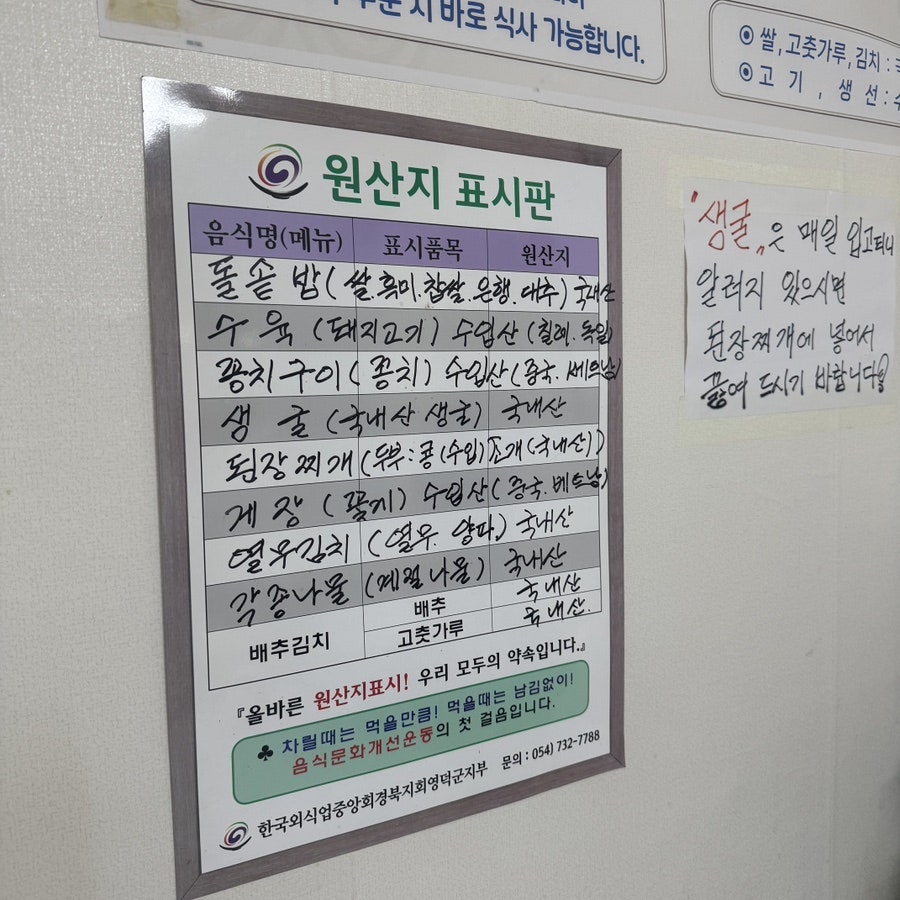 주문 시 바로 식사 가능합니다.
◉ 쌀, 고춧가루, 김치 :
◉ 고 기 , 생 선 :
원산지 표시판
음식명(메뉴) 표시품목 원산지
돌솥밥 (쌀.흑미.찹쌀.은행.대추) 국내산
수육 (돼지고기) 수입산 (칠레.독일)
꽁치구이 (꽁치) 수입산 (중국.베트남)
생 굴 (국내산 생굴) 국내산
된장찌개 (두부:콩(수입)조개(국내산))
게장 (꽃게) 수입산 (중국.베트남)
열무김치 (열무. 양파.) 국내산
각종나물 (계절나물) 국내산
배추김치 배추 국내산
고춧가루 국내산.
『올바른 원산지표시! 우리 모두의 약속입니다.』
♣ 차릴때는 먹을만큼! 먹을때는 남김없이!
음식문화개선운동의 첫 걸음입니다.
한국외식업중앙회경북지회영덕군지부 문의 : 054) 732-7788
"생굴"은 매일 입고되니
알러지 있으시면
된장찌개에 넣어서
끓여 드시기 바랍니다